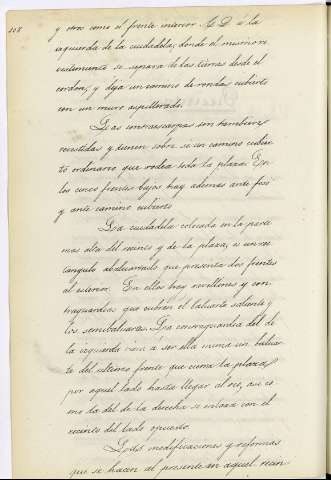 208
y otros como el frente interior C D a la
izquierda de la ciudadela, donde el muro re-
vestimiento se separa de las tierras desde el
cordon, y deja un camino de ronda cubierto
con un muro aspillerado.
Las contraescarpas son tambien
revestidas y tienen sobre si un camino cubier-
to ordinario que rodea toda la plaza. En
los cinco frentes bajos hay ademas ante foso
y ante camino cubierto
La ciudadela colocada en la parte
mas alta del recinto y de la plaza, es un rec-
tangulo abaluartado que presenta dos frentes
al esterior. En ellos hay revellines y con-
traguardias que cubren el baluarte saliente y
los semibaluartes. La contraguardia del de
la izquierda viene á ser ella misma un baluar-
te del ultimo frente que cierra la plaza,
por aquel lado hasta llegar al rio, asi co-
mo la del de la derecha se enlaza con el
recinto del lado opuesto
Las modificaciones y reformas
que se hacen al presente en aquel recin-